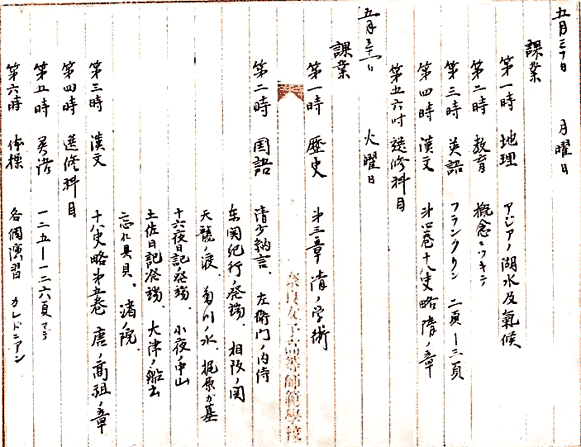 五月三十日　月曜日
課業
第一時　地理　アジアノ湖水及氣候
第二時　教育　概念ニツキテ
第三時　英語　フランクリン　二頁ー三頁
第四時　漢文　第四巻十八史略隋ノ章
第五六時　選修科目
五月三十一日　火曜日
課業
第一時　歴史　第三章　清ノ学術
第二時　国語　清少納言、左衛門ノ内侍
東関紀行ノ発端、相阪ノ関
天龍ノ渡、菊川ノ水、梶原が墓
十六夜日記ノ発端、小夜ノ中山
土佐日記発端、大津ノ船出
忘れ貝、渚ノ院、
第三時　漢文　十八史略第五巻　唐ノ高祖ノ章
第四時　選修科目
第五時　英語　一二五ー一二六頁マデ
第六時　体操　各個演習　カレドニアン
奈良女子高等師範學校